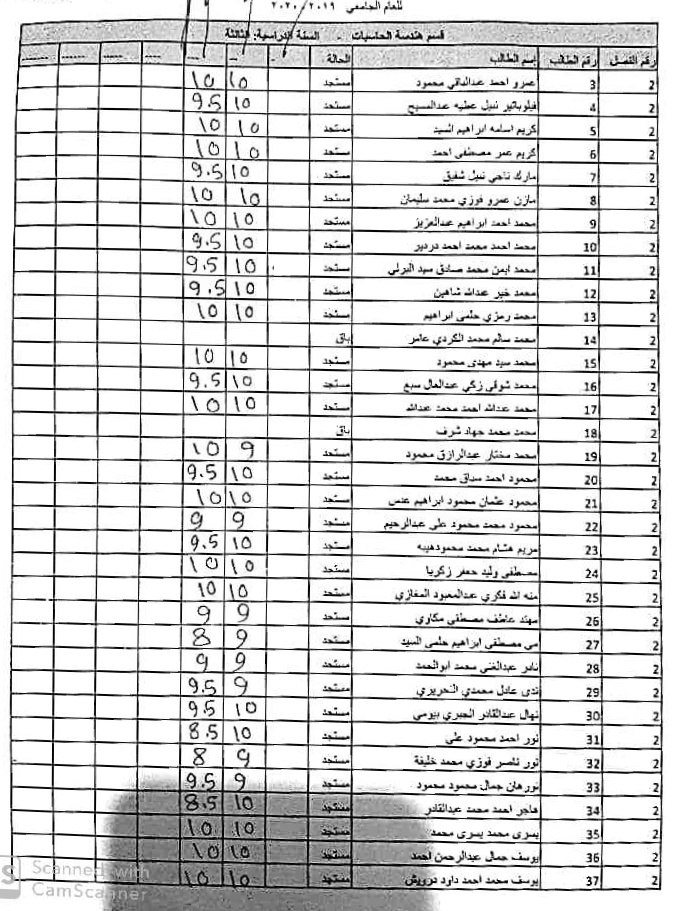 للعام الجامعي ٢٠١٩/٢٠٢٠
قسم هندسة الحاسبات - السنة الدراسية: الثالثة
رقم الفصل رقم الطالب إسم الطالب الحالة - -- --- ---- ----- ------
2 3 عمرو احمد عبدالباقي محمود مستجد 10 10
2 4 فيلوباتير نبيل عطيه عبدالمسيح مستجد 10 9.5
2 5 كريم اسامه ابراهيم السيد مستجد 10 10
2 6 كريم عمر مصطفى احمد مستجد 10 10
2 7 مارك ناجي نبيل شفيق مستجد 10 9.5
2 8 مازن عمرو فوزي محمد سليمان مستجد 10 10
2 9 محمد احمد ابراهيم عبدالعزيز مستجد 10 10
2 10 محمد احمد محمد احمد دردير مستجد 10 9.5
2 11 محمد ايمن محمد صادق سيد البرلي مستجد 10 9.5
2 12 محمد خير عبدالله شاهين مستجد 10 9.5
2 13 محمد رمزي حلمى ابراهيم مستجد 10 10
2 14 محمد سالم محمد الكردي عامر باق
2 15 محمد سيد مهدى محمود مستجد 10 10
2 16 محمد شوقى زكي عبدالعال سبع مستجد 10 9.5
2 17 محمد عبدالله احمد محمد عبدالله مستجد 10 10
2 18 محمد محمد جهاد شرف باق
2 19 محمد مختار عبدالرازق محمود مستجد 9 10
2 20 محمود احمد سداق محمد مستجد 10 9.5
2 21 محمود عثمان محمود ابراهيم عدس مستجد 10 10
2 22 محمود محمد محمود على عبدالرحيم مستجد 9 9
2 23 مريم هشام محمد محمودهيبه مستجد 10 9.5
2 24 مصطفى وليد جعفر زكريا مستجد 10 10
2 25 منه الله فكري عبدالمعبود المغازي مستجد 10 10
2 26 مهند عاطف مصطفى مكاوي مستجد 9 9
2 27 مي مصطفى ابراهيم حلمى السيد مستجد 9 8
2 28 نادر عبدالغنى محمد ابوالحمد مستجد 9 9
2 29 ندى عادل محمدي التحريري مستجد 9 9.5
2 30 نهال عبدالقادر الجبري بيومى مستجد 10 9.5
2 31 نور احمد محمود على مستجد 10 8.5
2 32 نور ناصر فوزي محمد خليفة مستجد 9 8
2 33 نورهان جمال محمود محمود مستجد 9 9.5
2 34 هاجر احمد محمد عبدالقادر مستجد 10 8.5
2 35 يسرى محمد يسرى محمد مستجد 10 10
2 36 يوسف جمال عبدالرحمن احمد مستجد 10 10
2 37 يوسف محمد احمد داود درويش مستجد 10 10
Scanned with
CamScanner